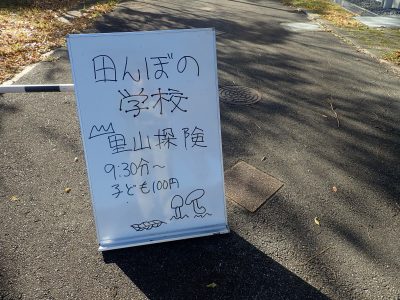 田んぼの
学校
里山探険
9:30分～
子ども100円